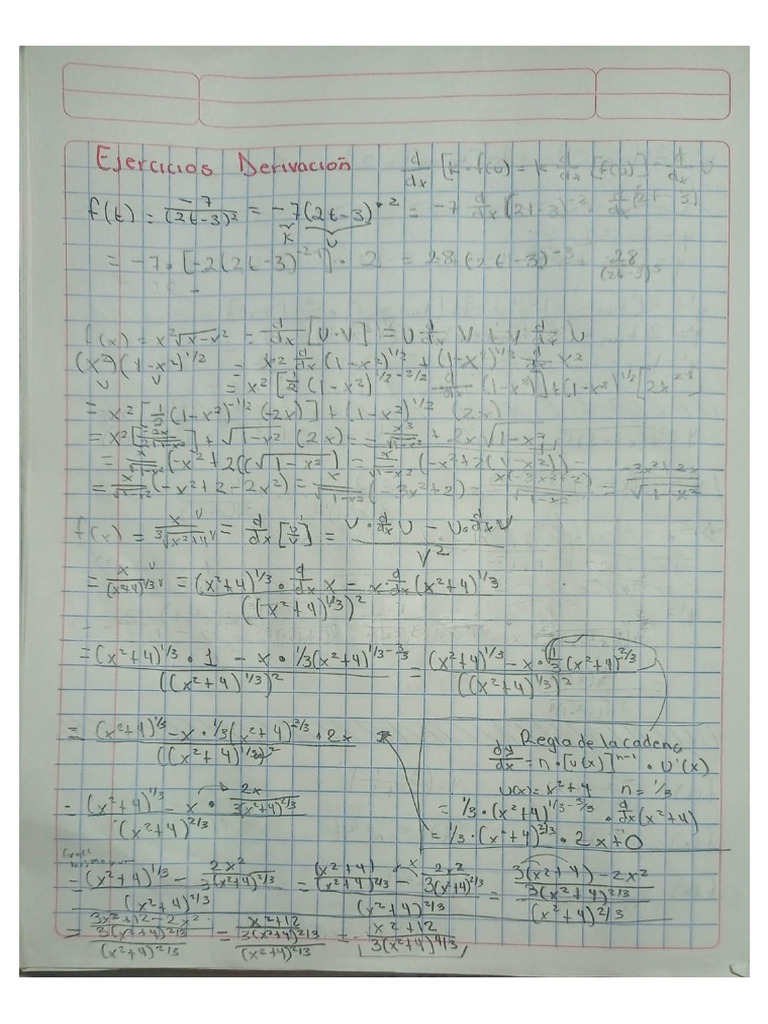 Ejercicios Derivación d/dx [k · f(u) = k d/dx [f(u)] = d/dx u
f(t) = -7/(2t-3)² = -7(2t-3)⁻² = -7 d/dx (2t-3)⁻² · d/dx (2t-3)
k u
= -7 · [-2(2t-3)⁻²⁻¹] · 2 = 28(2t-3)⁻³ = 28/(2t-3)³
f(x) = x²√x-x² = d/dx [U·V] = U d/dx V + V d/dx U
(x²)(1-x²)^1/2 = x² d/dx (1-x²)^1/2 + (1-x²)^1/2 d/dx x²
U V = x² [1/2 (1-x²)^1/2-2/2 d/dx (1-x²)] + (1-x²)^1/2 [2x²⁻¹]
= x² [1/2 (1-x²)^-1/2 (-2x)] + (1-x²)^1/2 (2x)
= x² [-2x/2√1-x²] + √1-x² (2x) = -x³/√1-x² + 2x√1-x²
= x/√1-x² (-x² + 2((√1-x²) = x/√1-x² (-x²+2(1-x²)) =
= x/√1-x² (-x²+2-2x²) = x/√1-x² (-3x²+2) = x(-3x²+2)/√1-x² = -3x²+2x/√1-x²
f(x) = x/³√x²+4 = d/dx [u/v] = V · d/dx U - U · d/dx V / V²
= x/(x²+4)^1/3 = (x²+4)^1/3 · d/dx x - x · d/dx (x²+4)^1/3 / ((x²+4)^1/3)²
= (x²+4)^1/3 · 1 - x · 1/3(x²+4)^1/3-3/3 / ((x²+4)^1/3)² = (x²+4)^1/3 - x · (1/3 (x²+4)^2/3 / ((x²+4)^1/3)²
= (x²+4)^1/3 - x · 1/3(x²+4)^-2/3 · 2x / ((x²+4)^1/3)²
Regla de la cadena
dy/dx = n · [u(x)]ⁿ⁻¹ · U'(x)
u(x) = x²+4 n = 1/3
= 1/3 · (x²+4)^1/3-3/3 · d/dx (x²+4)
= 1/3 · (x²+4)^2/3 · 2x+0
= (x²+4)^1/3 - x · 2x/3(x²+4)^2/3 / (x²+4)^2/3
= (x²+4)^1/3 - 2x²/3(x²+4)^2/3 / (x²+4)^2/3 = (x²+4)/(x²+4)^2/3 - 2x²/3(x²+4)^2/3 / (x²+4)^2/3 = 3(x²+4) - 2x²/3(x²+4)^2/3 / (x²+4)^2/3
= 3x²+12-2x²/3(x²+4)^2/3 / (x²+4)^2/3 = x²+12/3(x²+4)^2/3 / (x²+4)^2/3 = x²+12/3(x²+4)^4/3